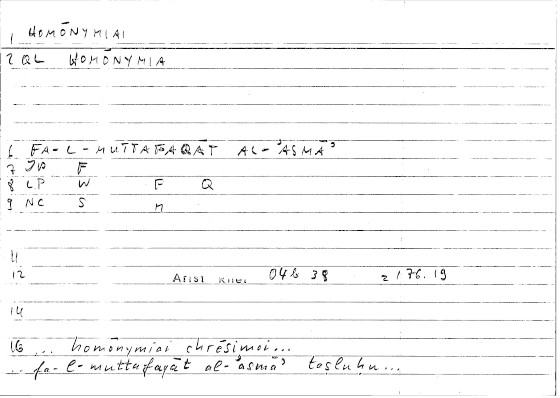 1 HOMŌNYMIAI
2 QL HOMŌNYMIA
6 FA-L-MUTTAFAQĀT AL-'ASMĀ'
7 JP F
8 LP W F Q
9 NC S M
11
12 Arist Rhet 04b 38 2 176.19
14
16 ... homōnymiai chrēsimoi...
... fa-l-muttafaqāt al-'asmā' taṣluḥu...